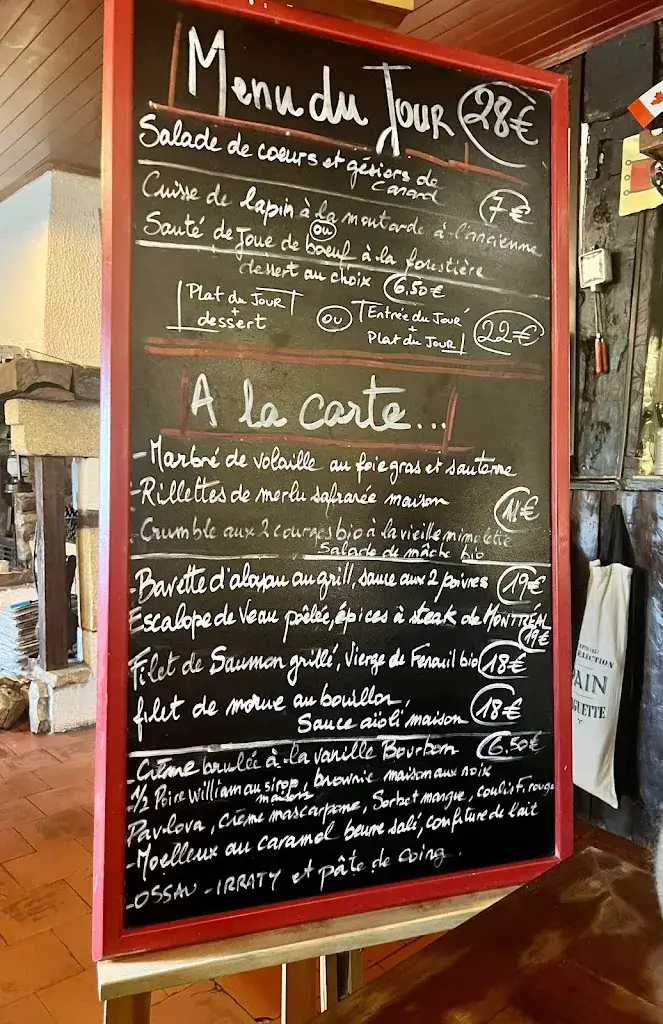 Menu du Jour 28€
Salade de coeurs et gésiers de
Canard 7€
Cuisse de lapin à la moutarde à l'ancienne
ou
Sauté de Joue de boeuf à la forestière
dessert au choix 6.50€
Plat du Jour
+
dessert
ou
Entrée du Jour
+
Plat du Jour
22€
A la carte...
-Marbré de volaille au foie gras et sauterne
-Rillettes de merlu safranée maison
11€
-Crumble aux 2 courges bio à la vieille mimolette
Salade de mâche bio
-Bavette d'aloyau au grill, sauce aux 2 poivres 19€
Escalope de Veau poêlée, épices à steak de MONTRÉAL
19€
Filet de Saumon grillé, Vierge de Fenouil bio 18€
filet de morue au bouillon
Sauce aïoli maison 18€
-Crème brulée à la vanille Bourbon 6.50€
-1/2 Poire William au sirop, brownie maison aux noix
maison
Pavlova, crème mascarpone, Sorbet mangue, coulis F. rouge
-Moelleux au caramel beurre salé, confiture de lait
-OSSAU-IRRATY et pâte de coing
PAIN